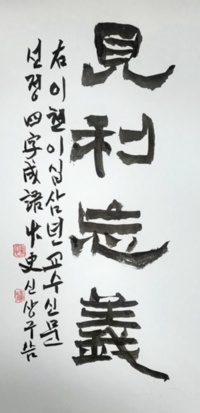 見利忘義
右 이천이십삼년 교수신문
선정 四字成語 中史 신상구 씀